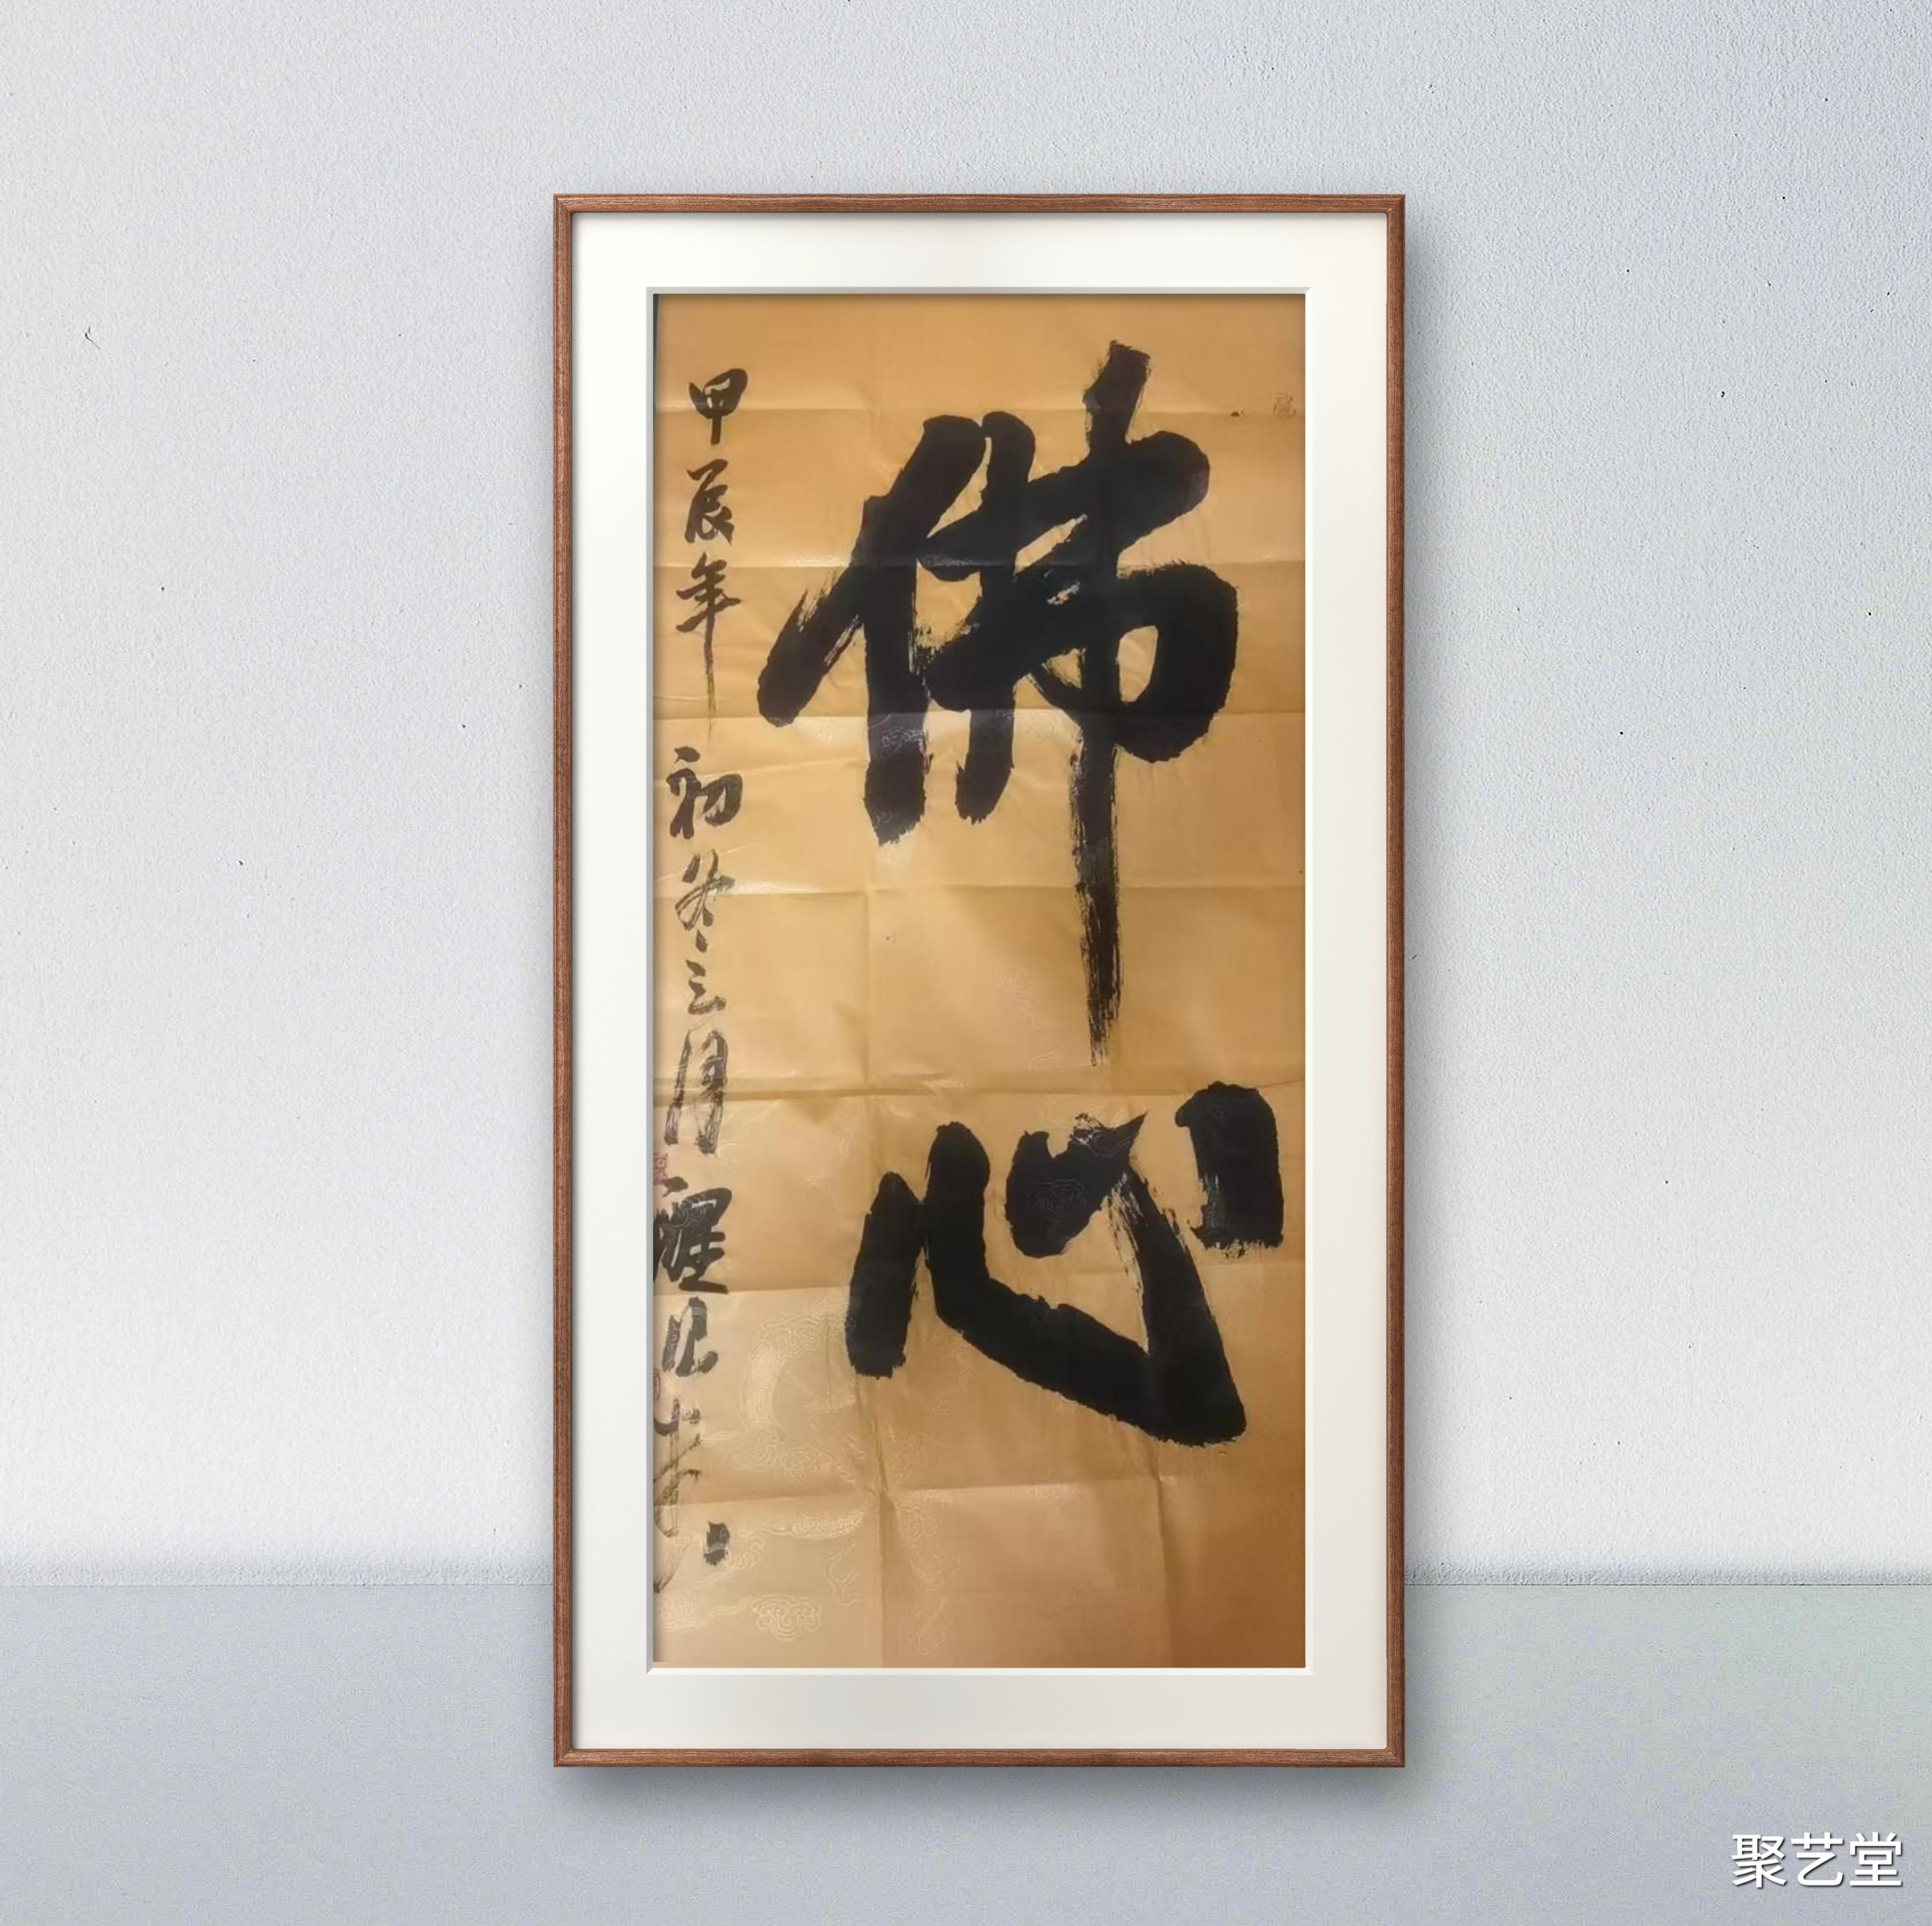 佛心
甲辰年初冬三月
聚艺堂